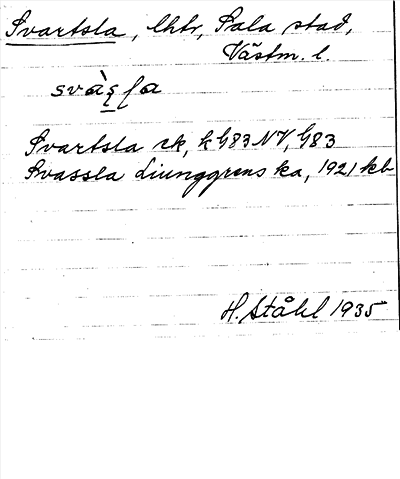 Svartsla, lhtr, Sala stad,
Västm. l.
svàs̱ḷa
Svartsla ek, k G83 NV, G83
Svassla Liunggrens ka, 1921 kb
H. Ståhl 1935